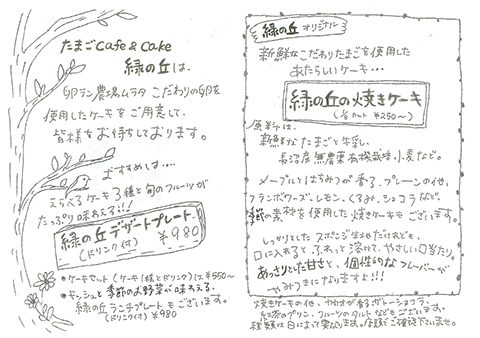 たまごCafe & Cake
緑の丘は、
卵ラン農場ムラタ こだわりの卵を
使用したケーキをご用意して、
皆様をお待ちしております。
おすすめは....
えらべるケーキ3種と旬のフルーツが
たっぷり味わえる!!!
緑の丘デザートプレート
(ドリンク付) ¥980
・ケーキセット(ケーキ1種とドリンク)は ¥550〜
・キッシュと季節のお野菜が味わえる、
緑の丘ランチプレートもございます。
(ドリンク付) ¥980
緑の丘 オリジナル
新鮮なこだわりたまごを使用した
あたらしいケーキ...
緑の丘の焼きケーキ
(1/8カット ¥250〜)
原料は、
新鮮なたまごと牛乳、
長沼産 無農薬有機栽培小麦など。
メープルとはちみつが香る、プレーンの他、
フランボワーズ、レモン、くるみ、ショコラなど、
季節の素材を使用した焼きケーキもございます。
しっかりとしたスポンジ生地だけれども、
口に入れるとふわっと溶けて、やさしい口当たり。
あっさりとした甘さと、個性的なフレーバーが
やみつきになりますよ!!!
焼きケーキの他、カカオが香るガトーショコラ、
紅茶のプリン、フルーツのタルトなどもございます。
種類は日によって異なります。店頭でご確認下さいませ。